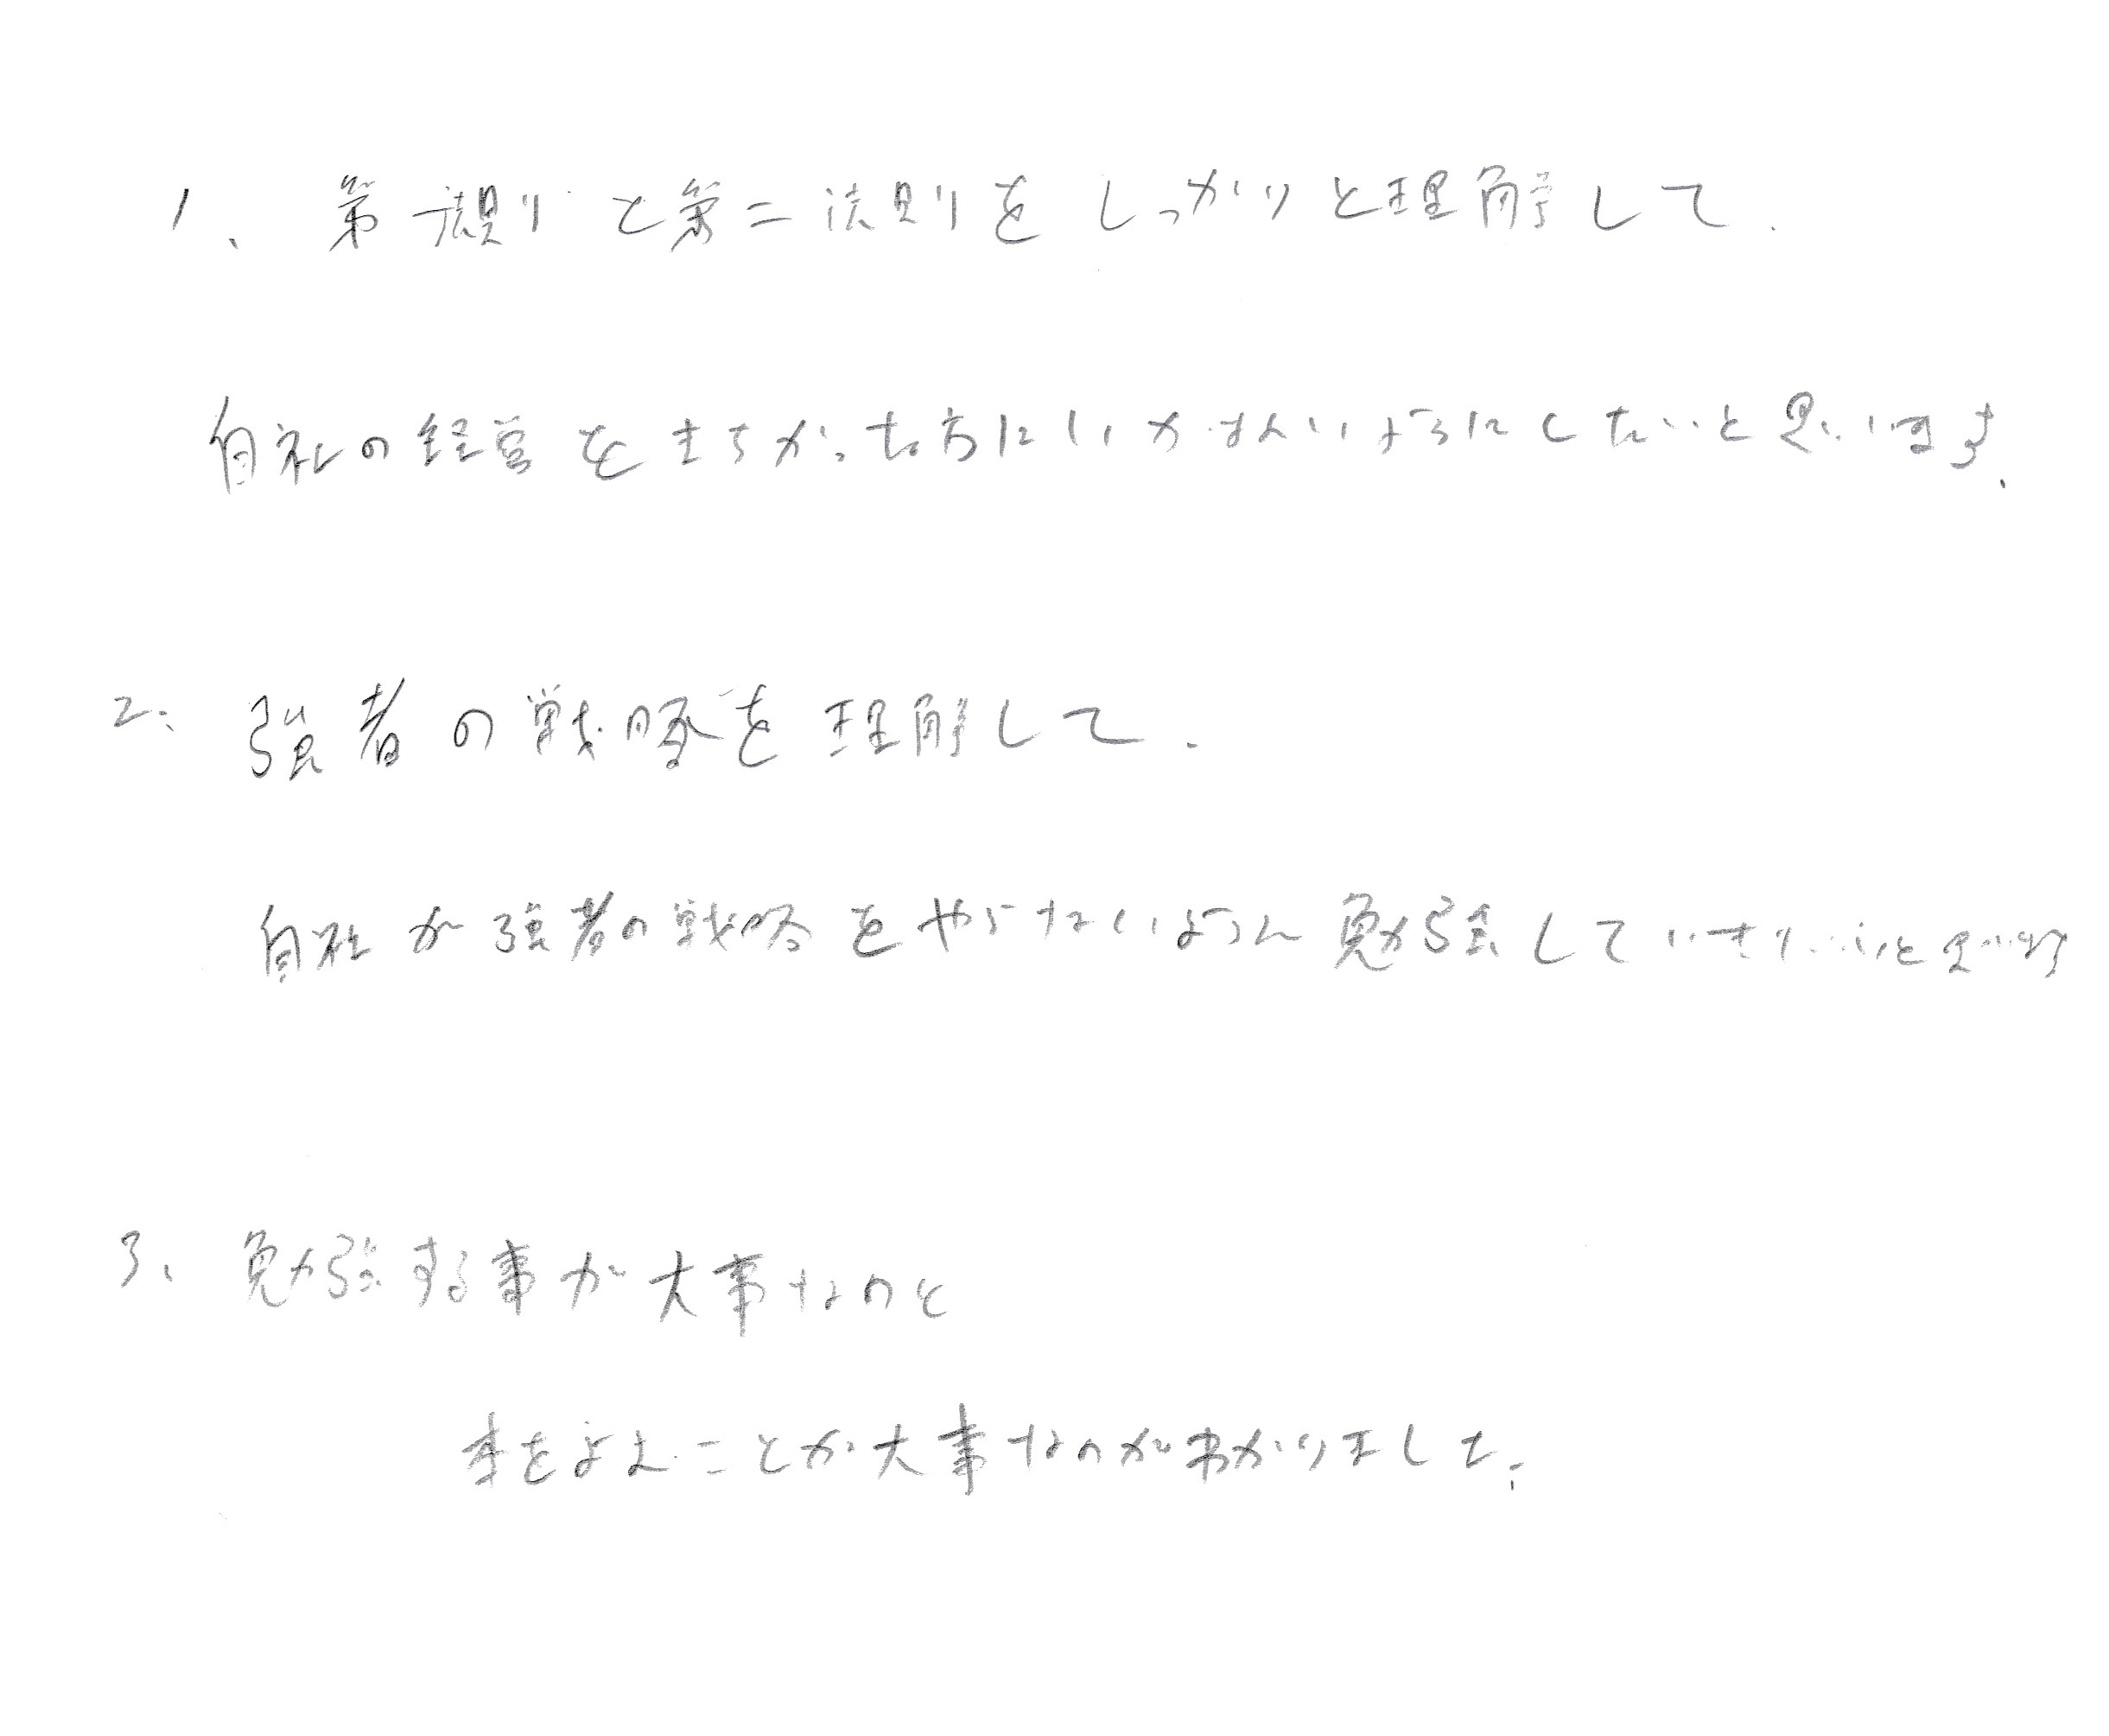 1、第一法則と第二法則をしっかりと理解して、
自社の経営をまちがった方にいかせないようにしたいと思います。
2、強者の戦略を理解して、
自社が強者の戦略をやらないように勉強していきたいと思います
3、勉強する事が大事なのと
本をよむことが大事なのがわかりました。